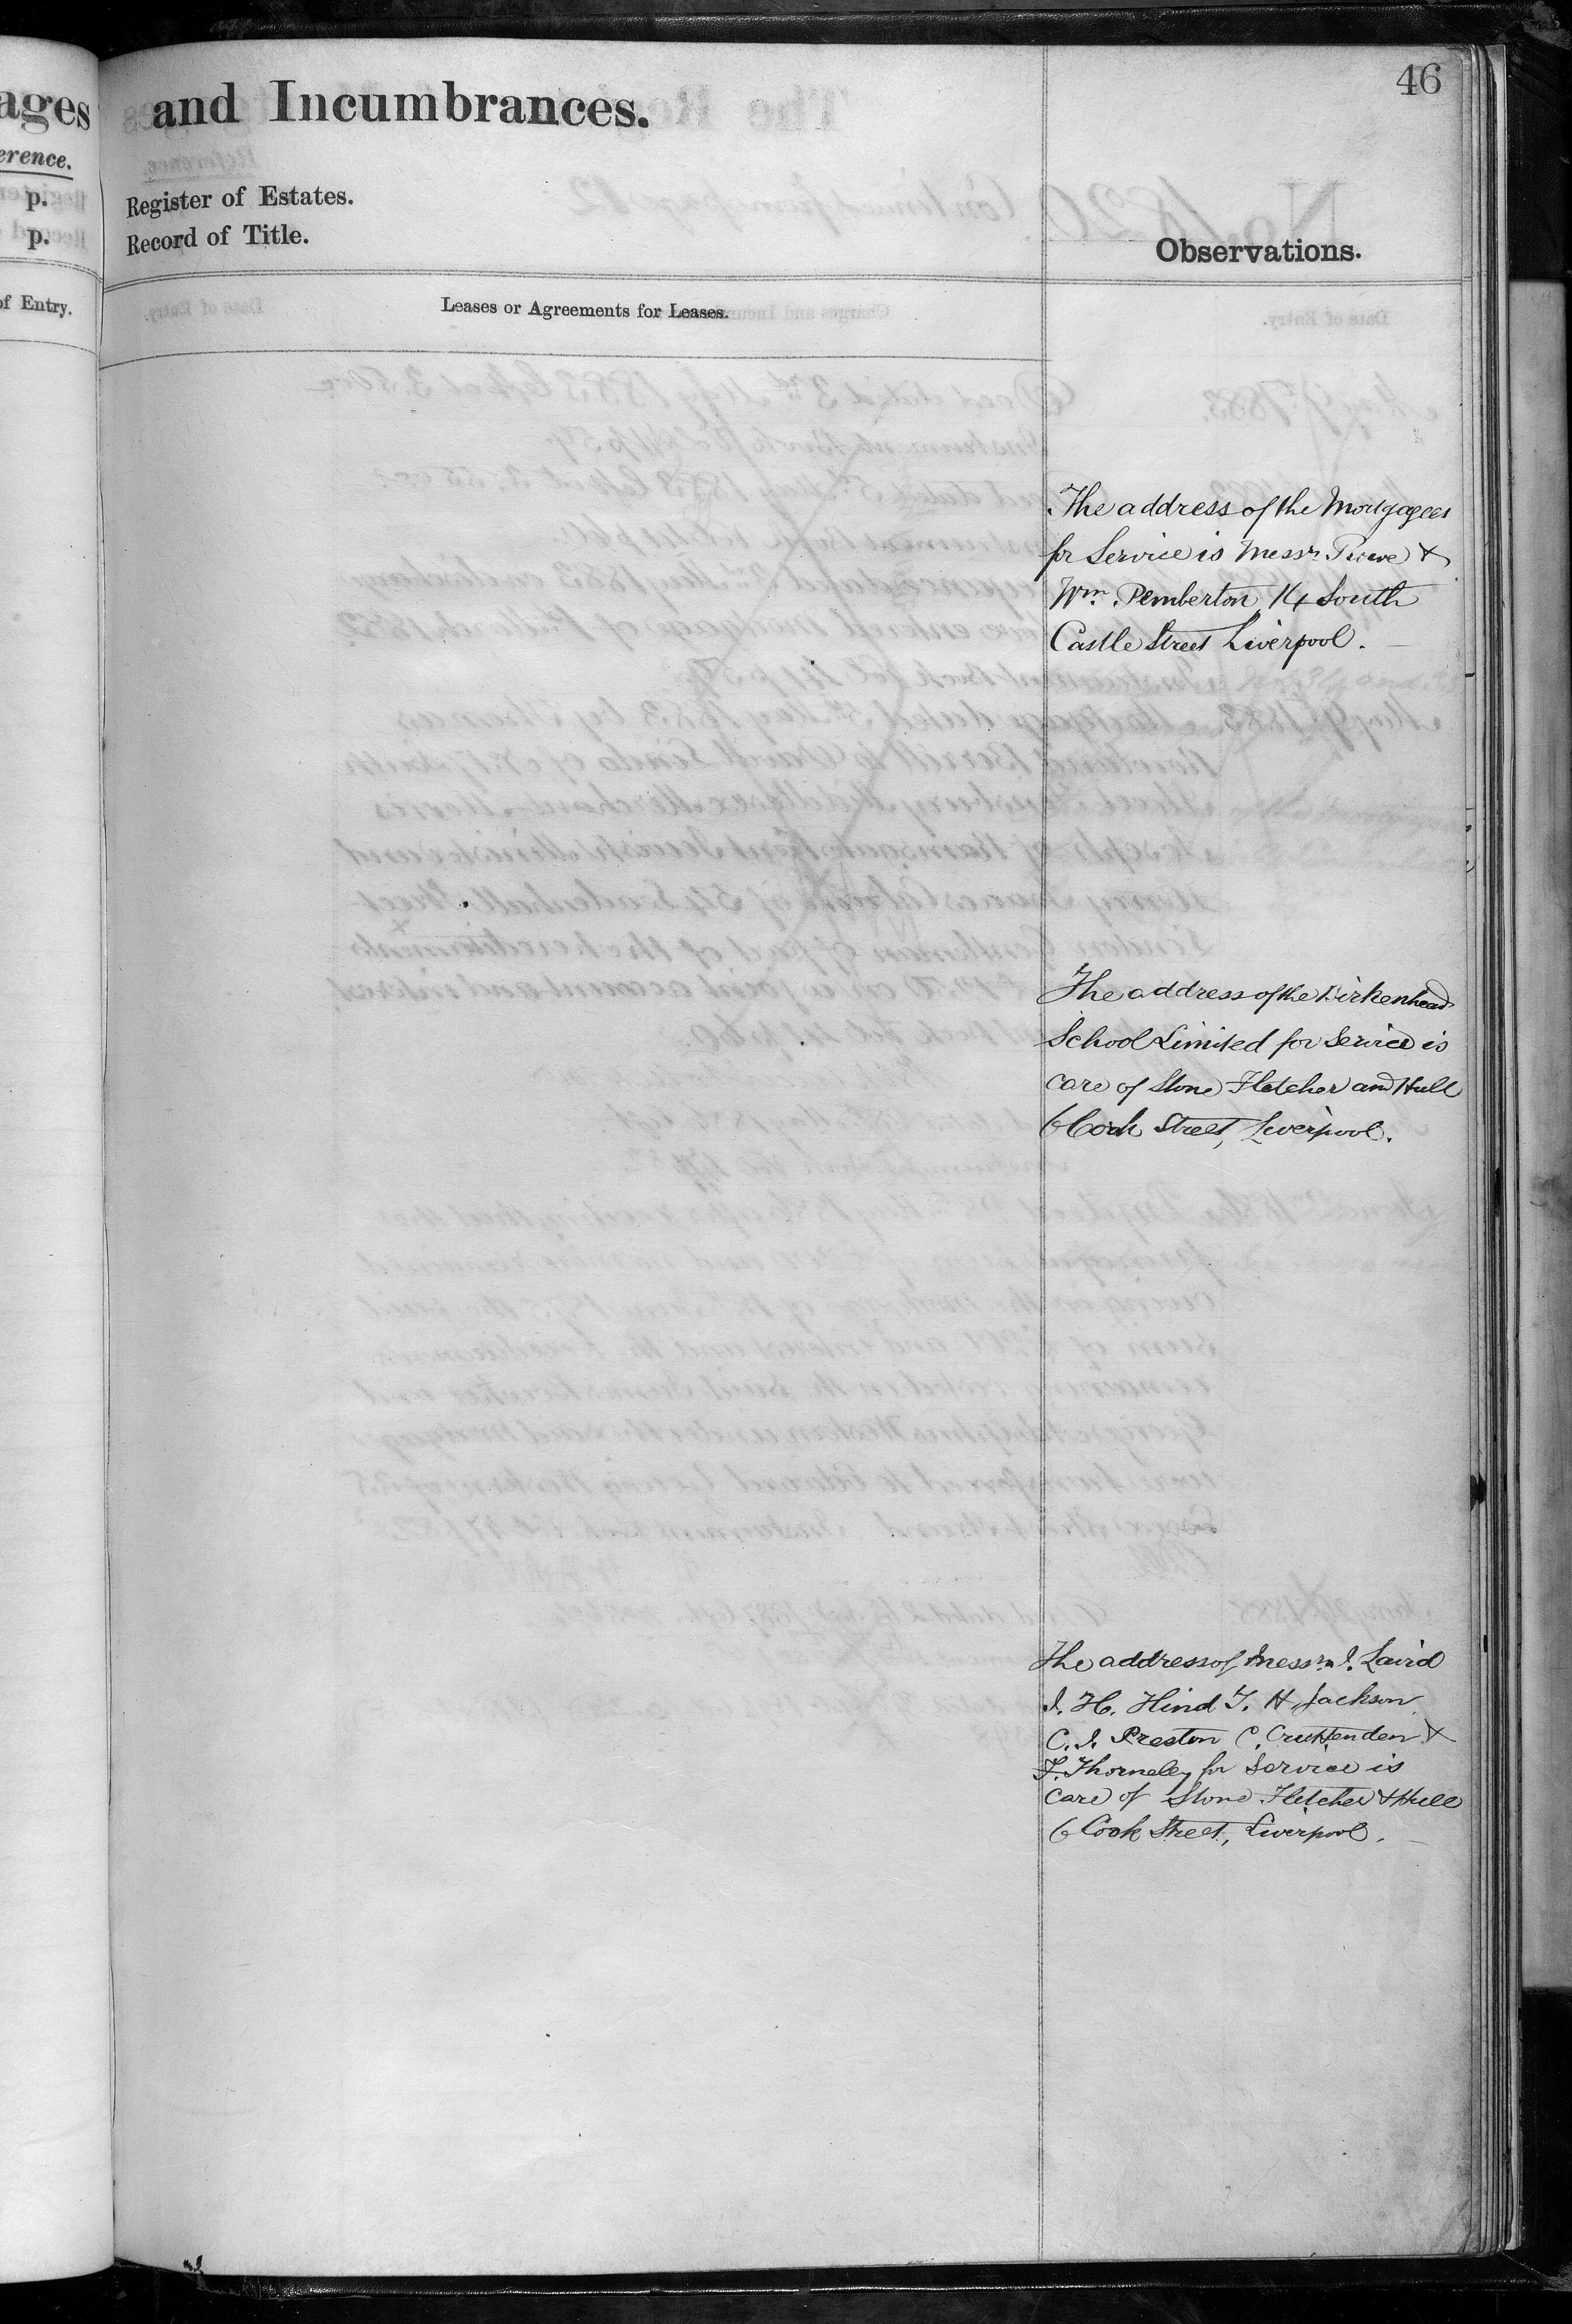 46
ages and Incumbrances.
erence.
p. Register of Estates.
p. Record of Title.
Observations.
of Entry.
Leases or Agreements for Leases.
The address of the Mortgagees
for Service is Messrs &
Wm. Pemberton 14 South
Castle Street Liverpool.
The address of the Birkenhead
School Limited for Service is
care of Stone Fletcher and Hull
6 Cook Street, Liverpool.
The address of Messrs J. Laird
J. H. Hind T. H. Jackson
C. J. Preston C. Cruttenden &
F. Thorneley for Service is
Care of Stone Fletcher & Hull
6 Cook Street, Liverpool.